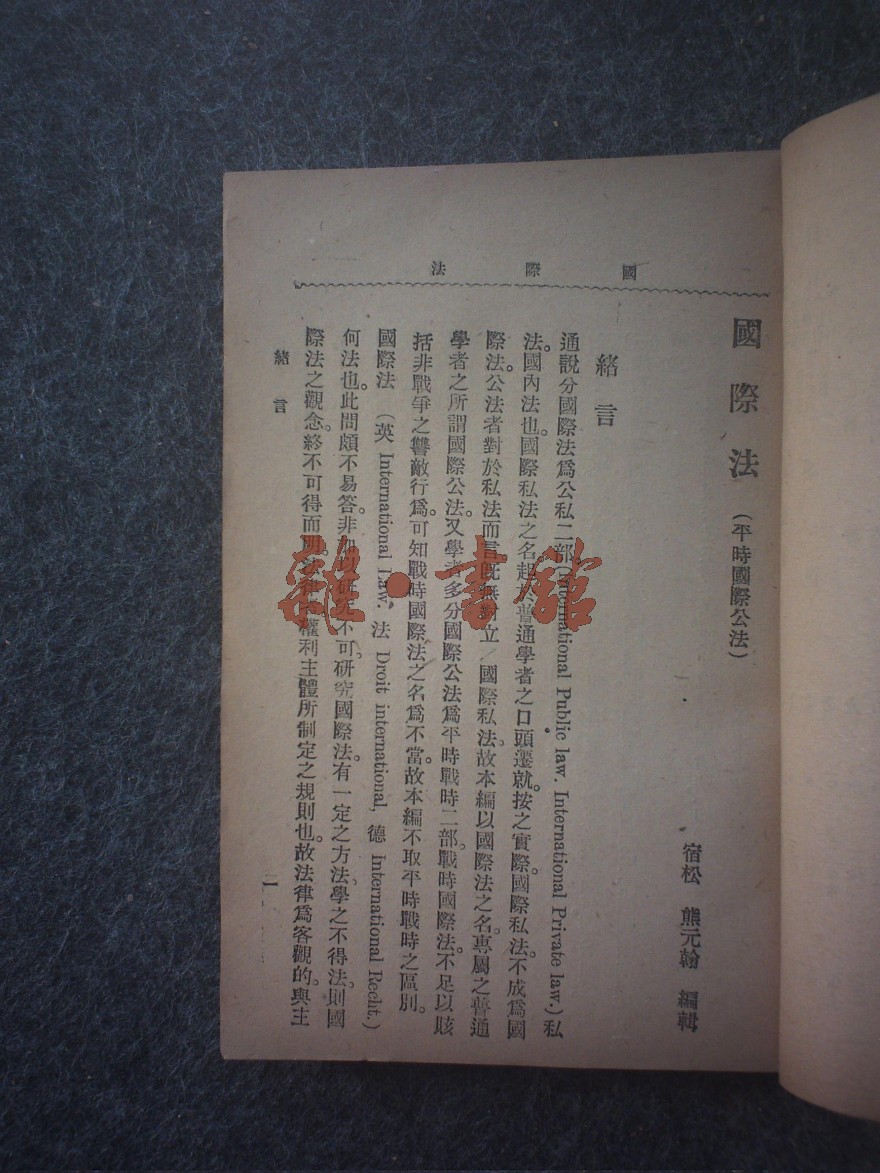 國際法
國際法（平時國際公法）
宿松 熊元翰 編輯
緒言
通說分國際法爲公私二部(International Public law. International Private law.)私
法。國內法也。國際私法之名。起於普通學者之口頭遷就。按之實際。國際私法。不成爲國
際法。公法者對於私法而言。既無對立國際私法。故本編以國際法之名。專屬之普通
學者之所謂國際公法。又學者多分國際公法爲平時戰時二部。戰時國際法。不足以賅
括非戰爭之讐敵行爲。可知戰時國際法之名爲不當。故本編不取平時戰時之區別。
國際法（英 International Law. 法 Droit international, 德 International Recht.）
何法也。此問頗不易答。非加以研究不可。研究國際法。有一定之方法。學之不得法。則國
際法之觀念。終不可得而明。法律者。權利主體所制定之規則也。故法律爲客觀的。與主
緒言
一
雜·書館